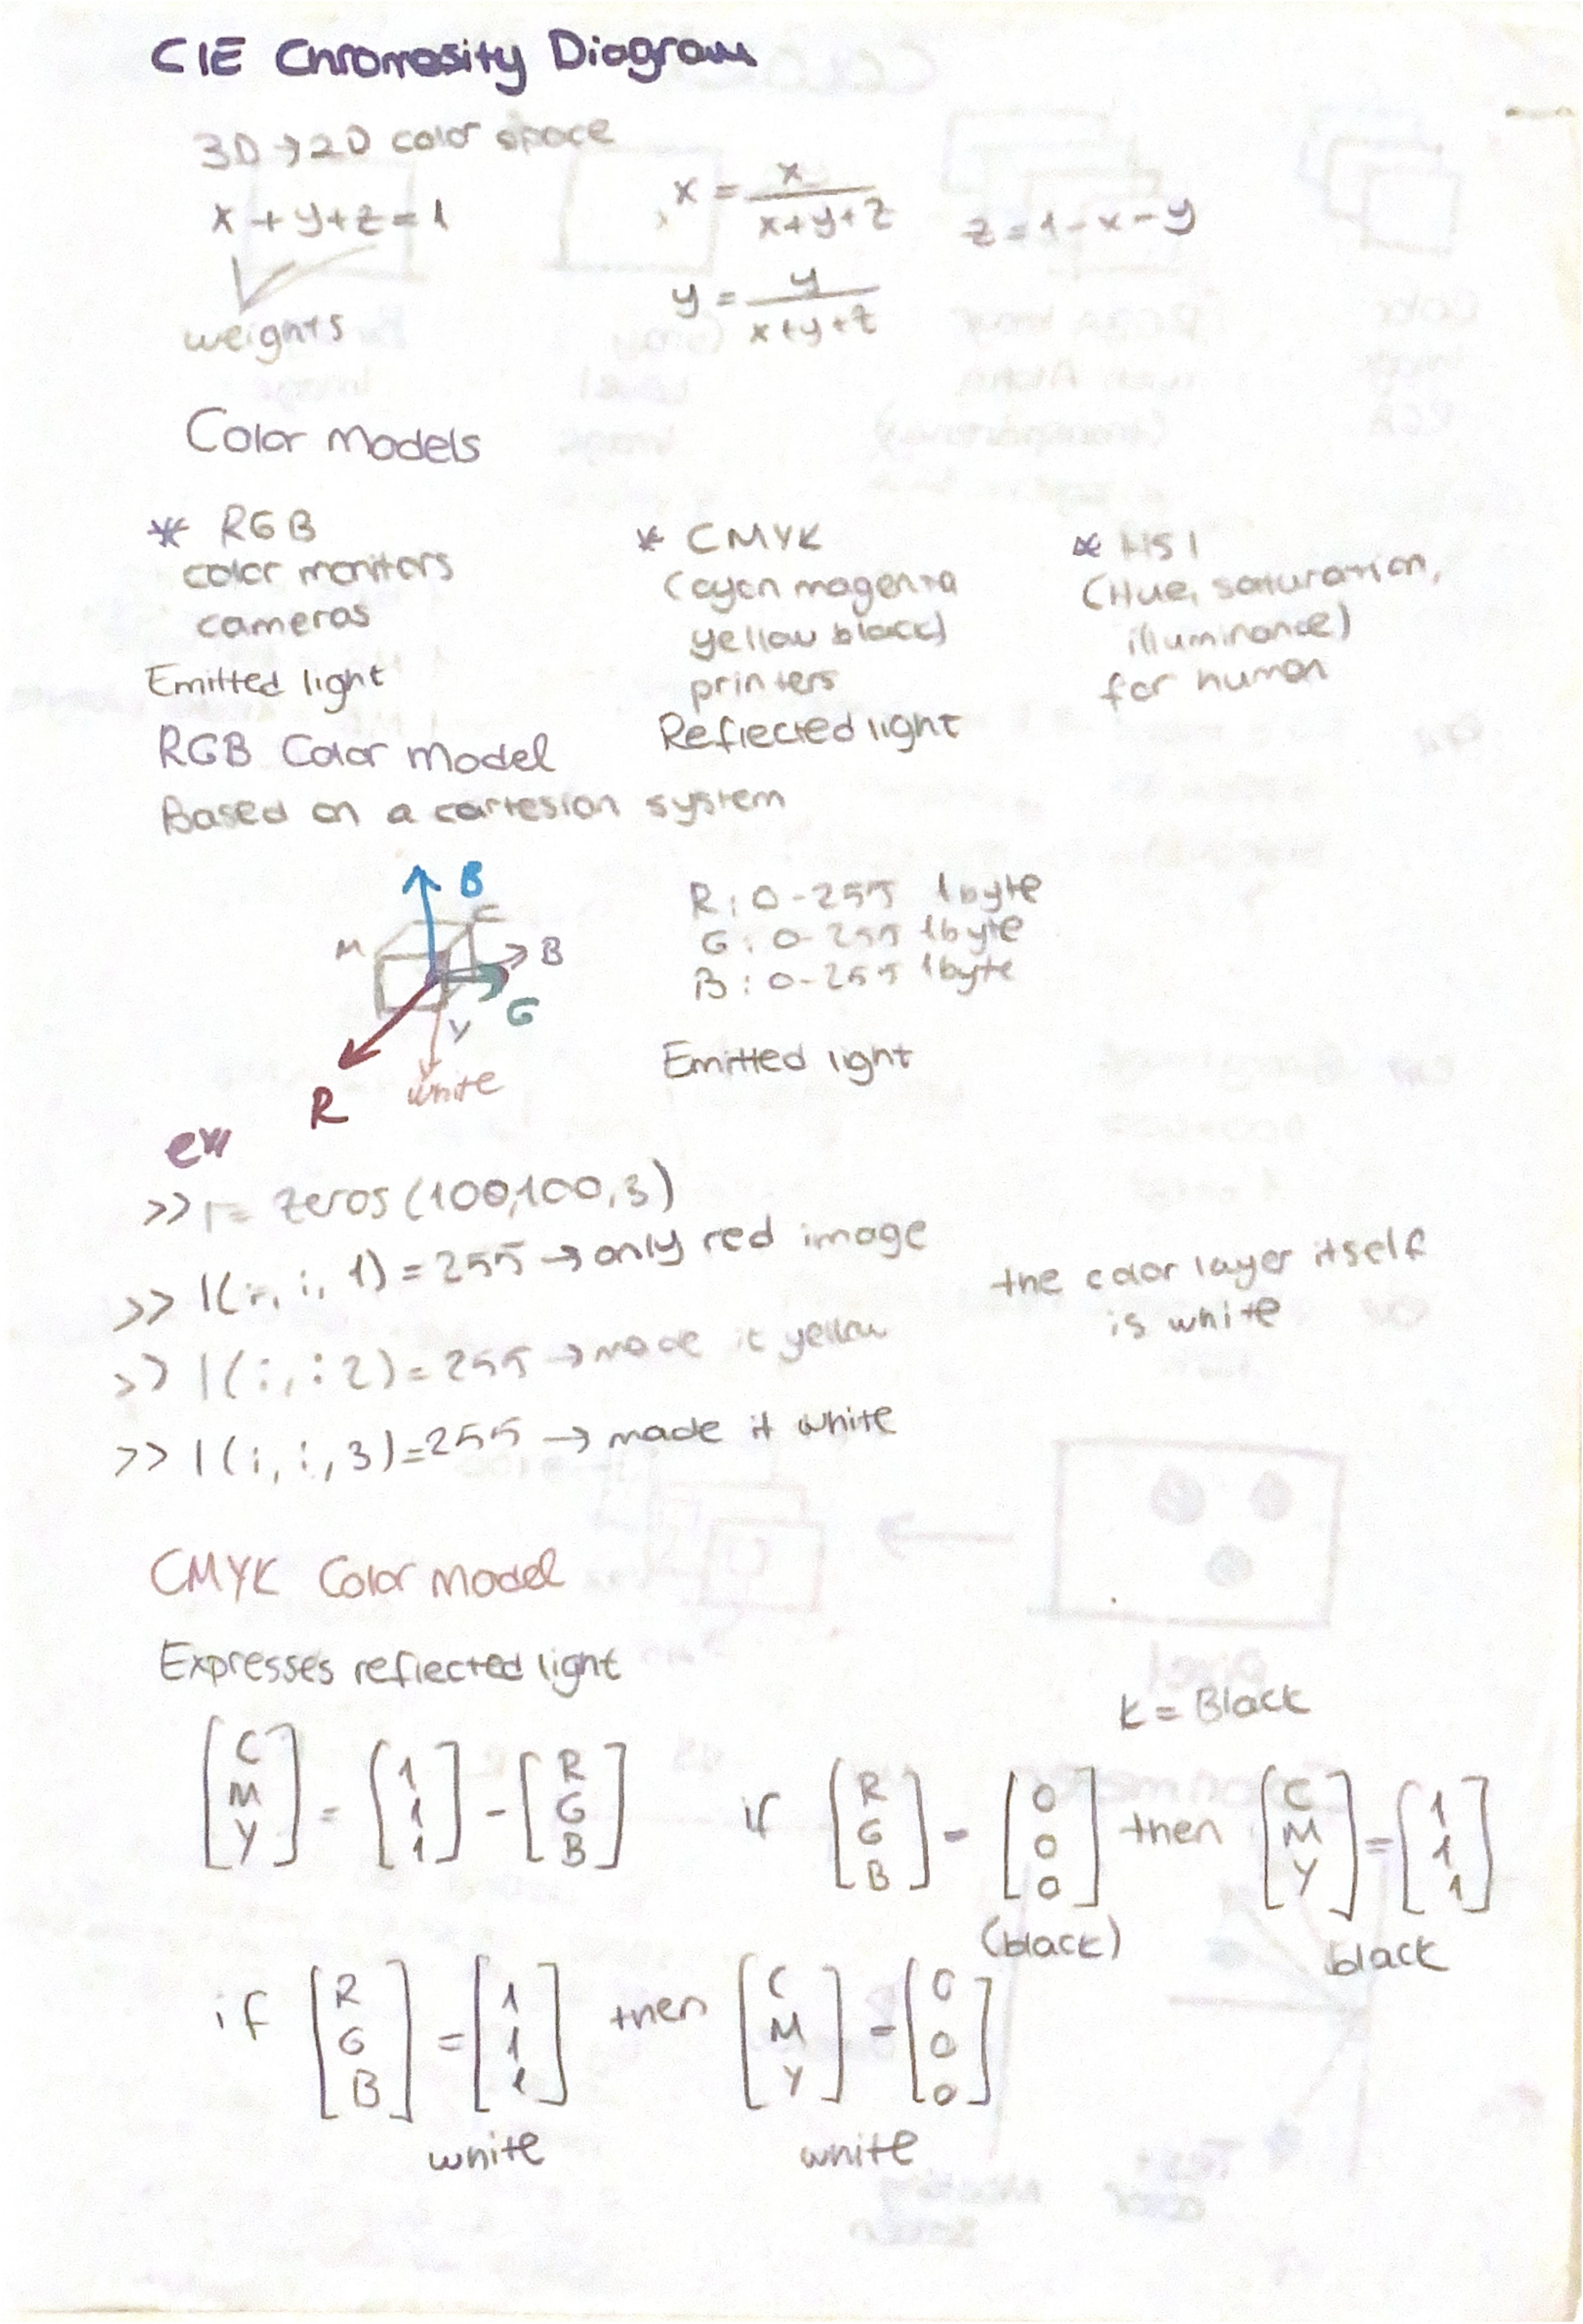 CIE Chromosity Diagram
3D → 2D color space
x + y + z = 1
weights
x = x / x+y+z
z = 1 - x - y
y = y / x+y+z
Color Models
* RGB
color monitors
cameras
Emitted light
* CMYK
(cyan magenta
yellow black)
printers
Reflected light
* HSI
(Hue, saturation,
illuminance)
for human
RGB Color Model
Based on a cartesian system
B
C
M
B
G
Y
white
R
R: 0-255 1 byte
G: 0-255 1 byte
B: 0-255 1 byte
Emitted light
ex
>> I = zeros (100,100,3)
>> I(:, :, 1) = 255 → only red image
the color layer itself
is white
>> I(:, : 2) = 255 → made it yellow
>> I(:, :, 3) = 255 → made it white
CMYK Color Model
Expresses reflected light
K = Black
[C M Y] = [1 1 1] - [R G B]
if [R G B] = [0 0 0] then [C M Y] = [1 1 1]
(black)
black
if [R G B] = [1 1 1] then [C M Y] = [0 0 0]
white
white